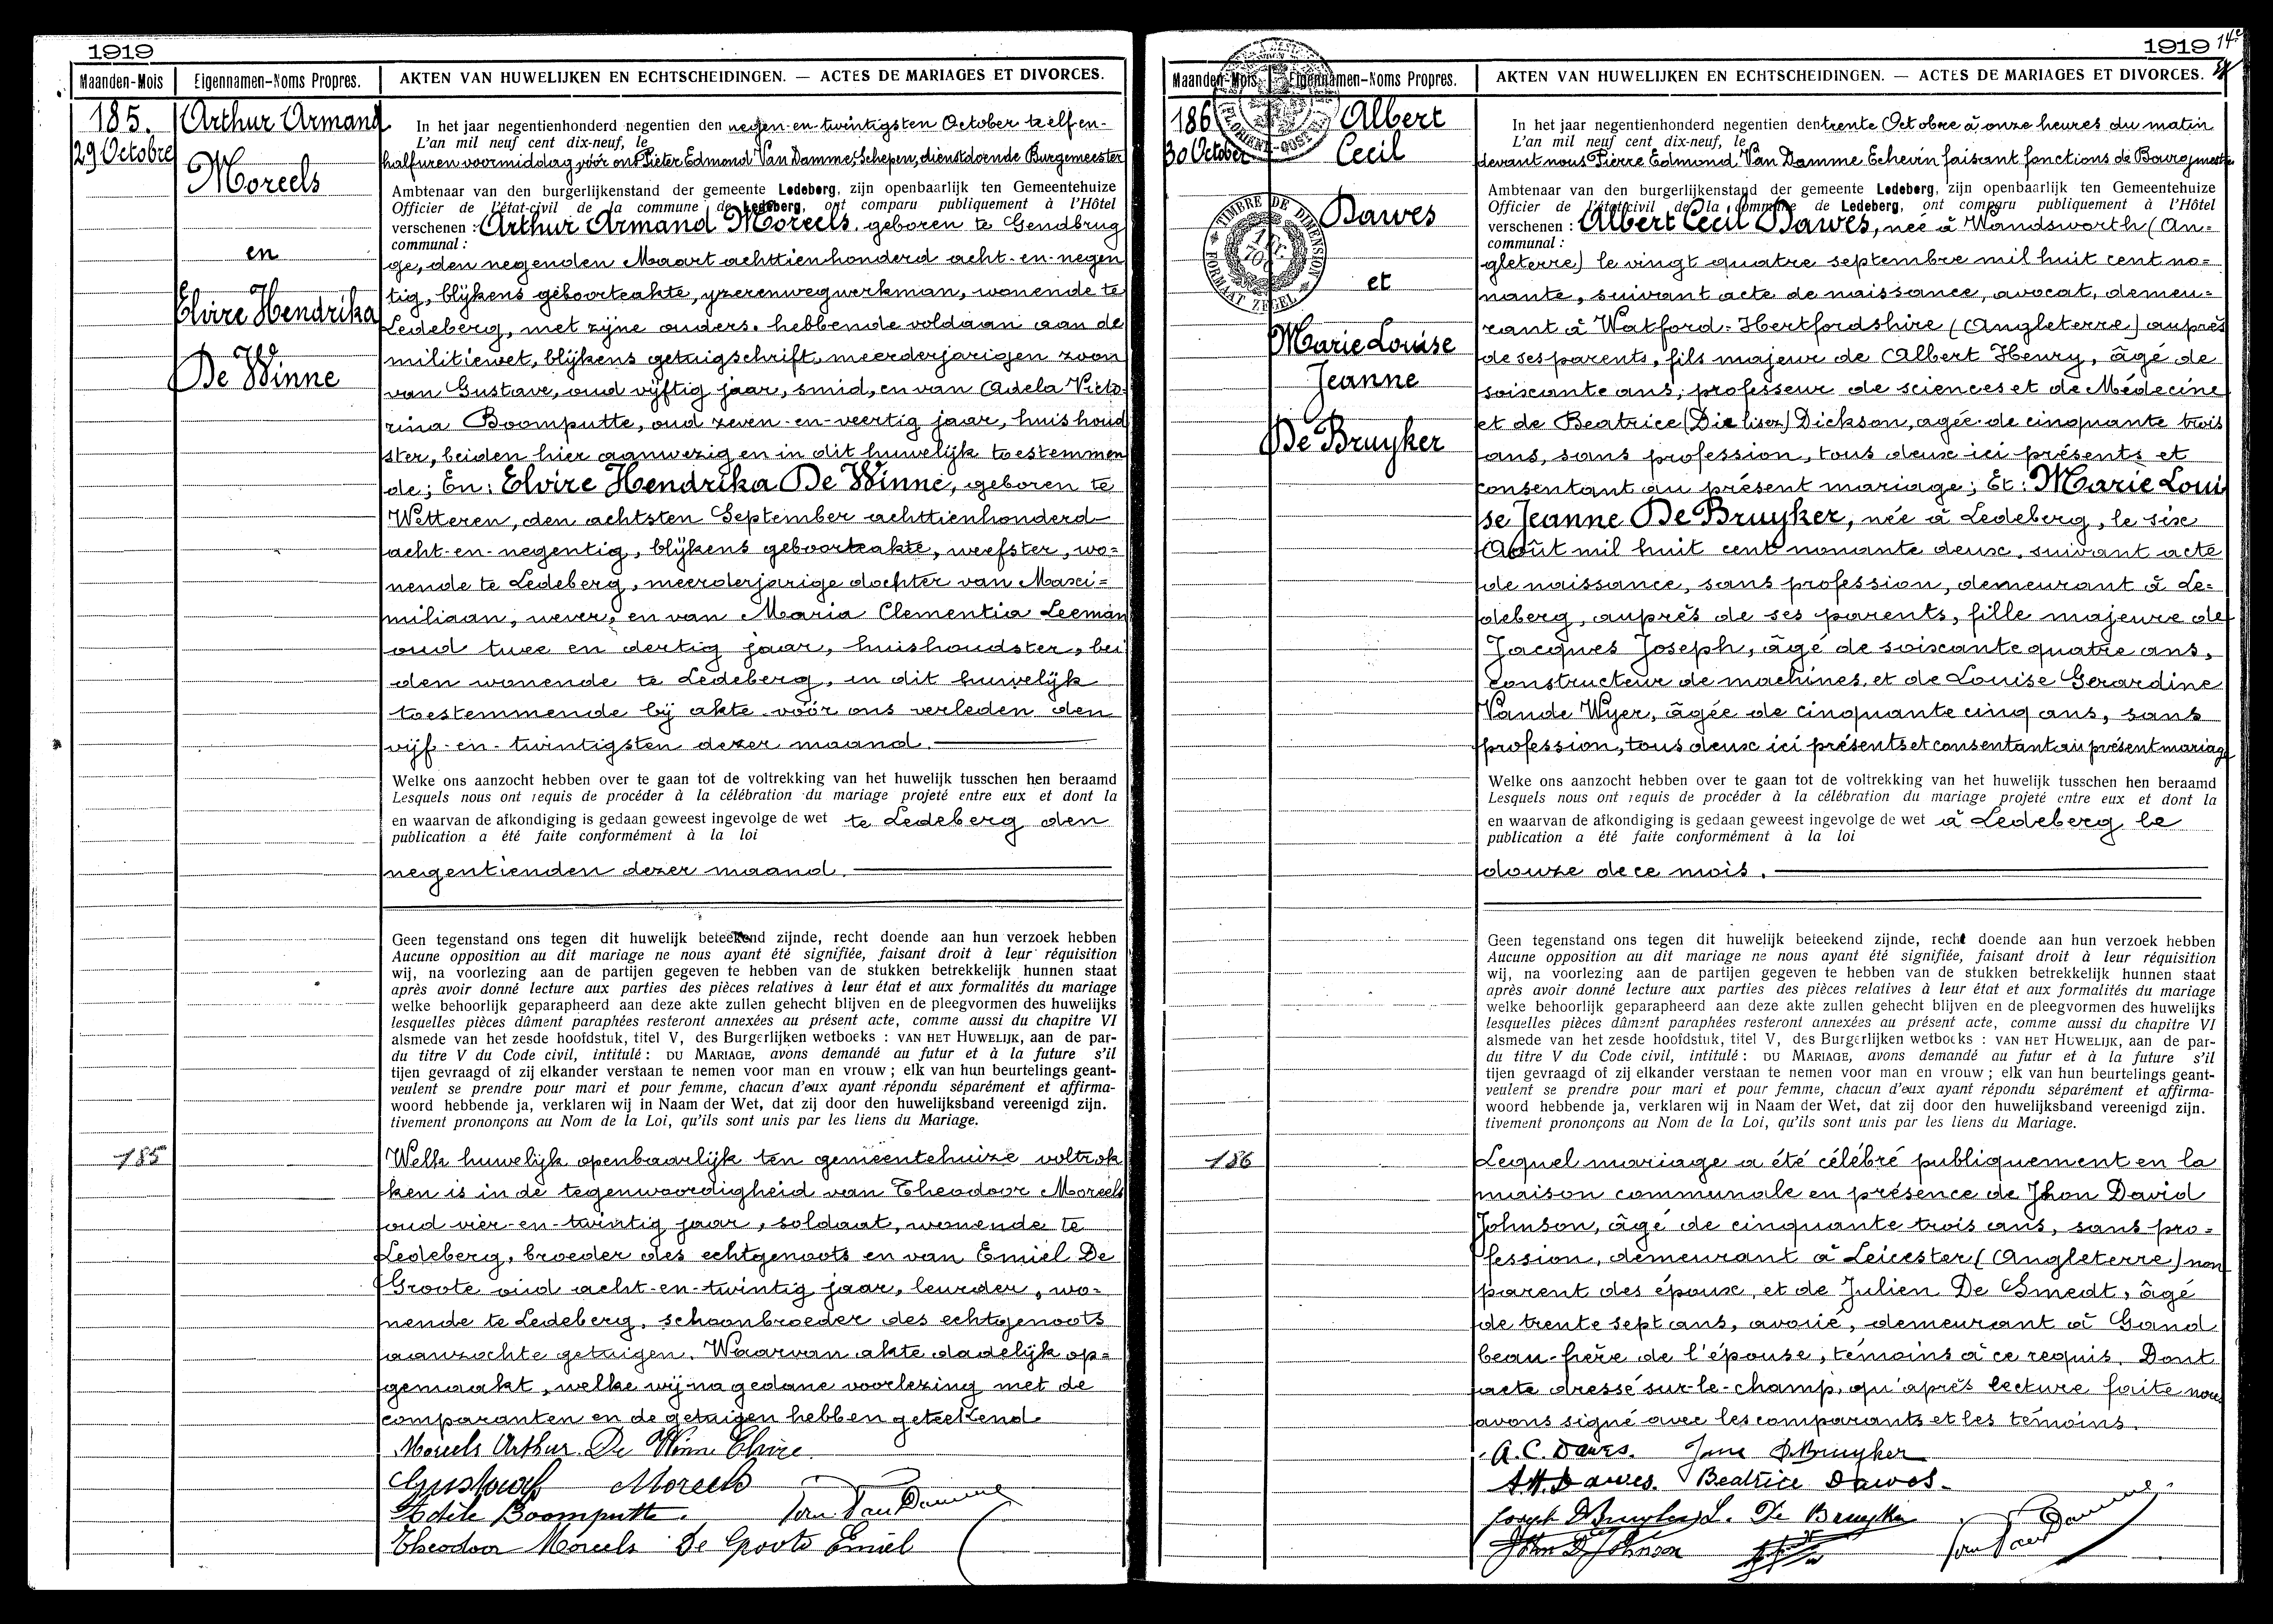 1919
Maanden-Mois
Eigennamen-Noms Propres.
AKTEN VAN HUWELIJKEN EN ECHTSCHEIDINGEN. — ACTES DE MARIAGES ET DIVORCES.
185.
29 Octobre
Arthur Armand
Moreels
en
Elvire Hendrika
De Winne
In het jaar negentienhonderd negentien den negen-en-twintigsten October te elf en-
L'an mil neuf cent dix-neuf, le
half uren voormiddag, vóór ons Pieter Edmond Van Damme, Schepen, dienstdoende Burgemeester
Ambtenaar van den burgerlijkenstand der gemeente Ledeberg, zijn openbaarlijk ten Gemeentehuize
Officier de l'état-civil de la commune de Ledeberg, ont comparu publiquement à l'Hôtel
verschenen : Arthur Armand Moreels, geboren te Gendbrug
communal :
ge, den negenden Maart achttienhonderd acht-en-negen
tig, blijkens geboorteakte, yzerenwegwerkman, wonende te
Ledeberg, met zijne ouders, hebbende voldaan aan de
militiewet, blijkens getuigschrift, meerderjarigen zoon
van Gustave, oud vijftig jaar, smid, en van Adela Victo-
rina Boomputte, oud zeven-en-veertig jaar, huishoud
ster, beiden hier aanwezig en in dit huwelijk toestemmen
de; En: Elvire Hendrika De Winne, geboren te
Wetteren, den achtsten September achttienhonderd
acht-en-negentig, blijkens geboorteakte, weefster, wo=
nende te Ledeberg, meerderjarige dochter van Maxi=
miliaan, wever, en van Maria Clementia Leeman
oud twee en dertig jaar, huishoudster, bei
den wonende te Ledeberg, in dit huwelijk
toestemmende bij akte vóór ons verleden den
vijf-en-twintigsten dezer maand.
Welke ons aanzocht hebben over te gaan tot de voltrekking van het huwelijk tusschen hen beraamd
Lesquels nous ont requis de procéder à la célébration du mariage projeté entre eux et dont la
en waarvan de afkondiging is gedaan geweest ingevolge de wet te Ledeberg den
publication a été faite conformément à la loi
negentienden dezer maand.
Geen tegenstand ons tegen dit huwelijk beteekend zijnde, recht doende aan hun verzoek hebben
Aucune opposition au dit mariage ne nous ayant été signifiée, faisant droit à leur réquisition
wij, na voorlezing aan de partijen gegeven te hebben van de stukken betrekkelijk hunnen staat
après avoir donné lecture aux parties des pièces relatives à leur état et aux formalités du mariage
welke behoorlijk geparapheerd aan deze akte zullen gehecht blijven en de pleegvormen des huwelijks
lesquelles pièces dûment paraphées resteront annexées au présent acte, comme aussi du chapitre VI
alsmede van het zesde hoofdstuk, titel V, des Burgerlijken wetboeks : VAN HET HUWELIJK, aan de par-
du titre V du Code civil, intitulé : DU MARIAGE, avons demandé au futur et à la future s'il
tijen gevraagd of zij elkander verstaan te nemen voor man en vrouw ; elk van hun beurtelings geant-
veulent se prendre pour mari et pour femme, chacun d'eux ayant répondu séparément et affirma-
woord hebbende ja, verklaren wij in Naam der Wet, dat zij door den huwelijksband vereenigd zijn.
tivement prononçons au Nom de la Loi, qu'ils sont unis par les liens du Mariage.
185
Welk huwelijk openbaarlijk ten gemeentehuize voltrok
ken is in de tegenwoordigheid van Theodoor Moreels
oud vier-en-twintig jaar, soldaat, wonende te
Ledeberg, broeder des echtgenoots en van Emiel De
Groote oud acht-en-twintig jaar, leurder, wo-
nende te Ledeberg, schoonbroeder des echtgenoots
aanzochte getuigen. Waarvan akte dadelijk op=
gemaakt, welke wij na gedane voorlezing met de
comparanten en de getuigen hebben geteekend.
Moreels Arthur De Winne Elvire
Gustaaf Moreels
Adele Boomputte. Van Damme
Theodoor Moreels De Groote Emiel
1919
Maanden-Mois
Eigennamen-Noms Propres.
AKTEN VAN HUWELIJKEN EN ECHTSCHEIDINGEN. — ACTES DE MARIAGES ET DIVORCES.
186
30 October
TIMBRE DE DIMENSION
FORMAAT ZEGEL
Albert
Cecil
Dawes
et
Marie Louise
Jeanne
De Bruyker
In het jaar negentienhonderd negentien den trente Octobre à onze heures du matin
L'an mil neuf cent dix-neuf, le
devant nous Pierre Edmond Van Damme Echevin faisant fonctions de Bourgmestre
Ambtenaar van den burgerlijkenstand der gemeente Ledeberg, zijn openbaarlijk ten Gemeentehuize
Officier de l'état-civil de la commune de Ledeberg, ont comparu publiquement à l'Hôtel
verschenen : Albert Cecil Dawes, née à Wandsworth (An=
communal :
gleterre) le vingt quatre septembre mil huit cent no=
nante, suivant acte de naissance, avocat, demeu=
rant à Watford-Hertfordshire (Angleterre) auprès
de ses parents, fils majeur de Albert Henry, âgé de
soixante ans, professeur de sciences et de Médecine
et de Beatrice Dickson, agée de cinquante trois
ans, sans profession, tous deux ici présents et
consentant au présent mariage; Et: Marie Loui
se Jeanne De Bruyker, née à Ledeberg, le six
Août mil huit cent nonante deux, suivant acte
de naissance, sans profession, demeurant à Le=
deberg, auprès de ses parents, fille majeure de
Jacques Joseph, âgé de soixante quatre ans,
constructeur de machines, et de Louise Gerardine
Vande Wyer, âgée de cinquante cinq ans, sans
profession, tous deux ici présents et consentant au présent mariage
Welke ons aanzocht hebben over te gaan tot de voltrekking van het huwelijk tusschen hen beraamd
Lesquels nous ont requis de procéder à la célébration du mariage projeté entre eux et dont la
en waarvan de afkondiging is gedaan geweest ingevolge de wet à Ledeberg le
publication a été faite conformément à la loi
douze de ce mois.
Geen tegenstand ons tegen dit huwelijk beteekend zijnde, recht doende aan hun verzoek hebben
Aucune opposition au dit mariage ne nous ayant été signifiée, faisant droit à leur réquisition
wij, na voorlezing aan de partijen gegeven te hebben van de stukken betrekkelijk hunnen staat
après avoir donné lecture aux parties des pièces relatives à leur état et aux formalités du mariage
welke behoorlijk geparapheerd aan deze akte zullen gehecht blijven en de pleegvormen des huwelijks
lesquelles pièces dûment paraphées resteront annexées au présent acte, comme aussi du chapitre VI
alsmede van het zesde hoofdstuk, titel V, des Burgerlijken wetboeks : VAN HET HUWELIJK, aan de par-
du titre V du Code civil, intitulé : DU MARIAGE, avons demandé au futur et à la future s'il
tijen gevraagd of zij elkander verstaan te nemen voor man en vrouw ; elk van hun beurtelings geant-
veulent se prendre pour mari et pour femme, chacun d'eux ayant répondu séparément et affirma-
woord hebbende ja, verklaren wij in Naam der Wet, dat zij door den huwelijksband vereenigd zijn.
tivement prononçons au Nom de la Loi, qu'ils sont unis par les liens du Mariage.
186
Lequel mariage a été célébré publiquement en la
maison communale en présence de Jhon David
Johnson, âgé de cinquante trois ans, sans pro=
fession, demeurant à Leicester (Angleterre) non
parent des époux, et de Julien De Smedt, âgé
de trente sept ans, avoué, demeurant à Gand
beau-frère de l'épouse, témoins à ce requis. Dont
acte dressé sur-le-champ, qu'après lecture faite nous
avons signé avec les comparants et les témoins.
A. C. Dawes. Jane De Bruyker
A.H. Dawes. Beatrice Dawes.
Joseph De Bruyker L. De Bruyker
John D. Johnson Van Damme